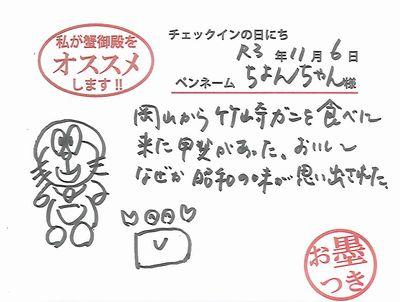 私が蟹御殿を
オススメ
します!!
チェックインの日にち
R3 年 11 月 6 日
ペンネーム ちょんちゃん 様
岡山から竹崎ガニを食べに
来た甲斐があった。おいしい〜
なぜか昭和の味が思い出された。
お墨
つき